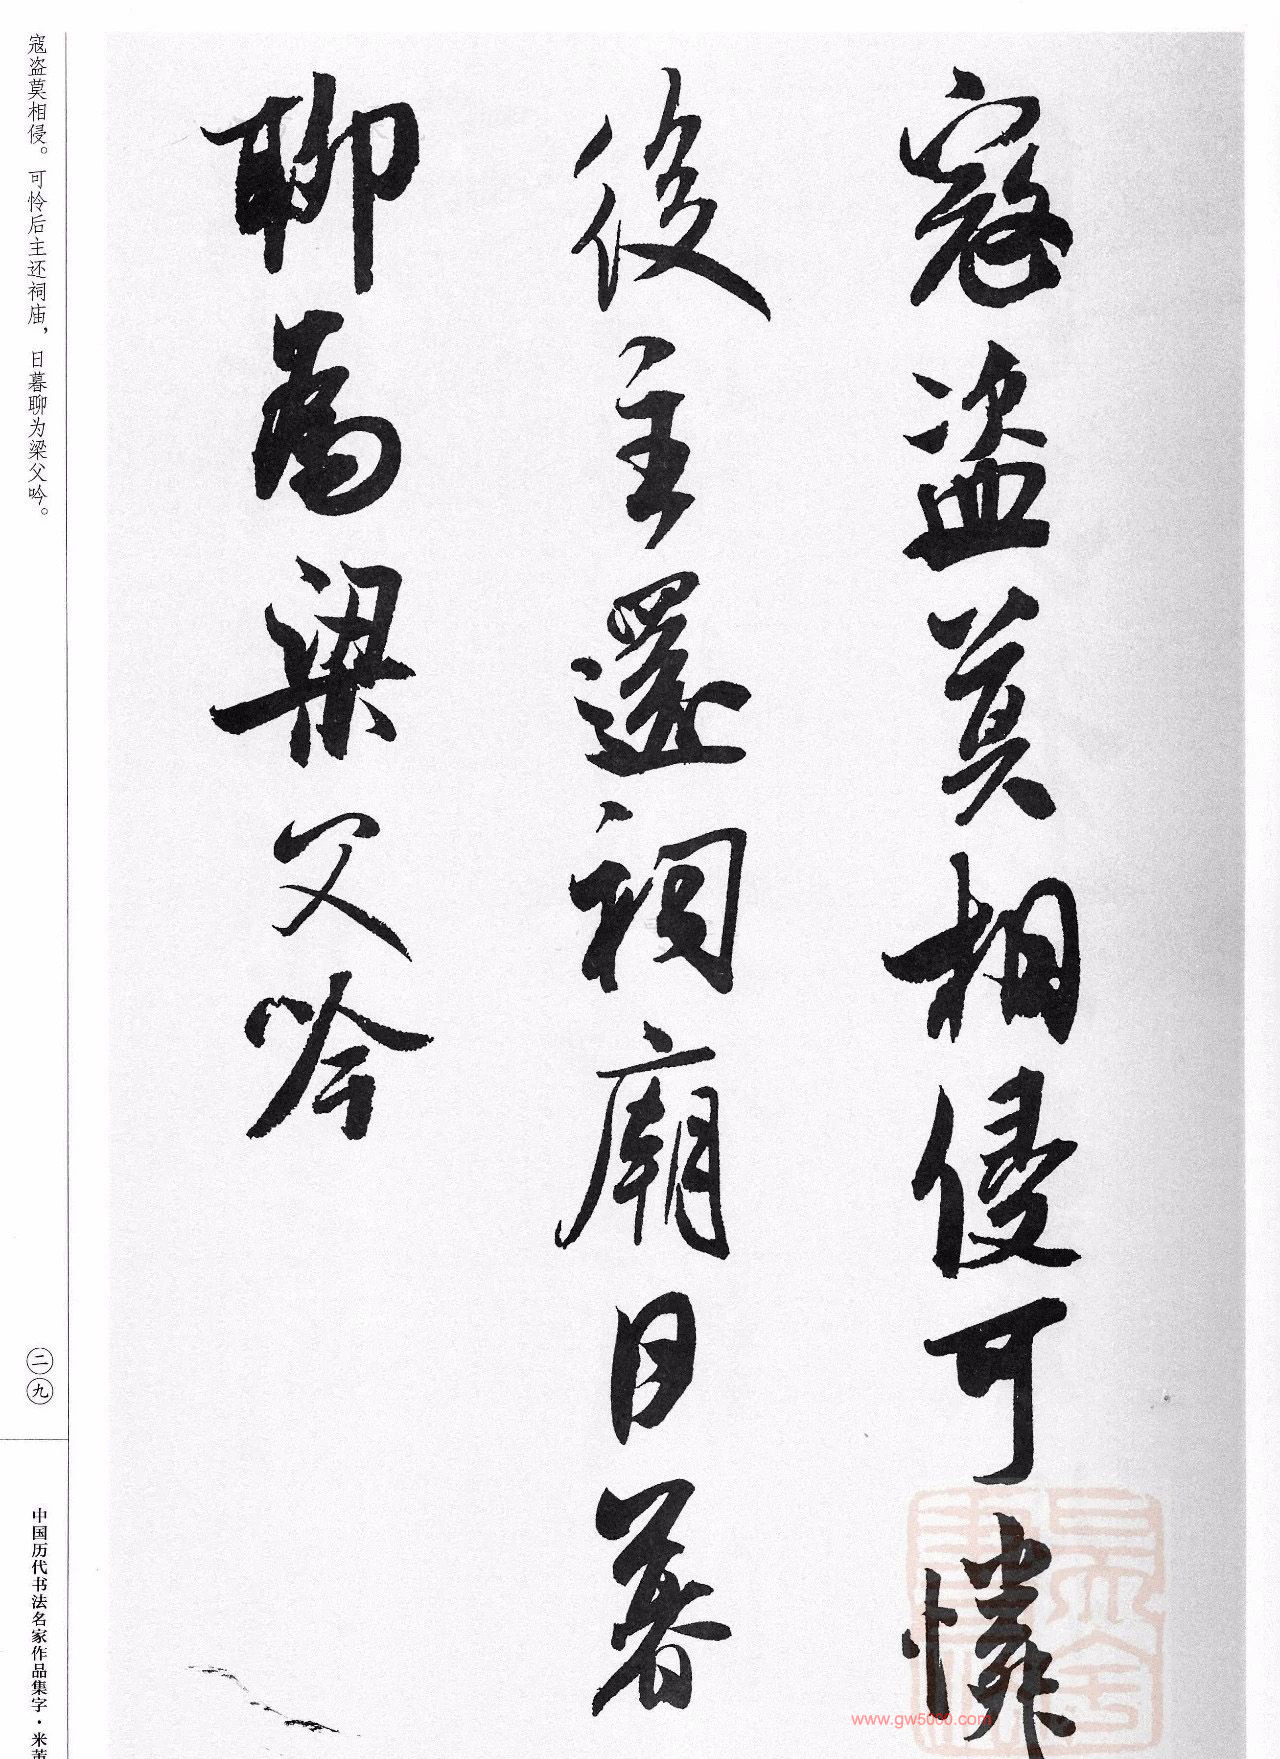 寇盗莫相侵可憐
後主還祠廟日暮
聊為梁父吟
寇盗莫相侵。可怜后主还祠庙，日暮聊为梁父吟。
二九
中国历代书法名家作品集字·米芾
www.gw5000.com